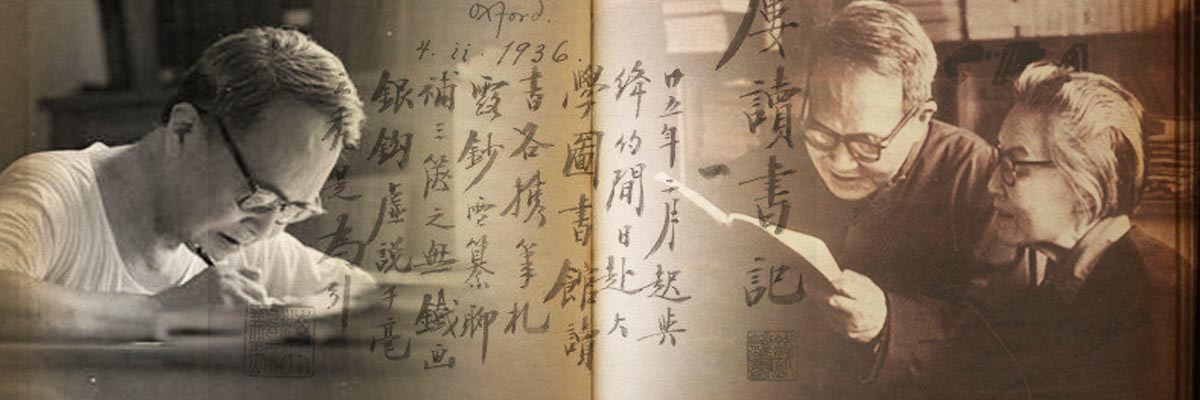 讀書記
Oxford.
4. ii. 1936.
廿五年二月起與
絳約間日赴大
學圖書館讀
書各攜筆札
露鈔雪纂聊
補三篋之無鐵画
銀鉤虛說千毫
禿是為引